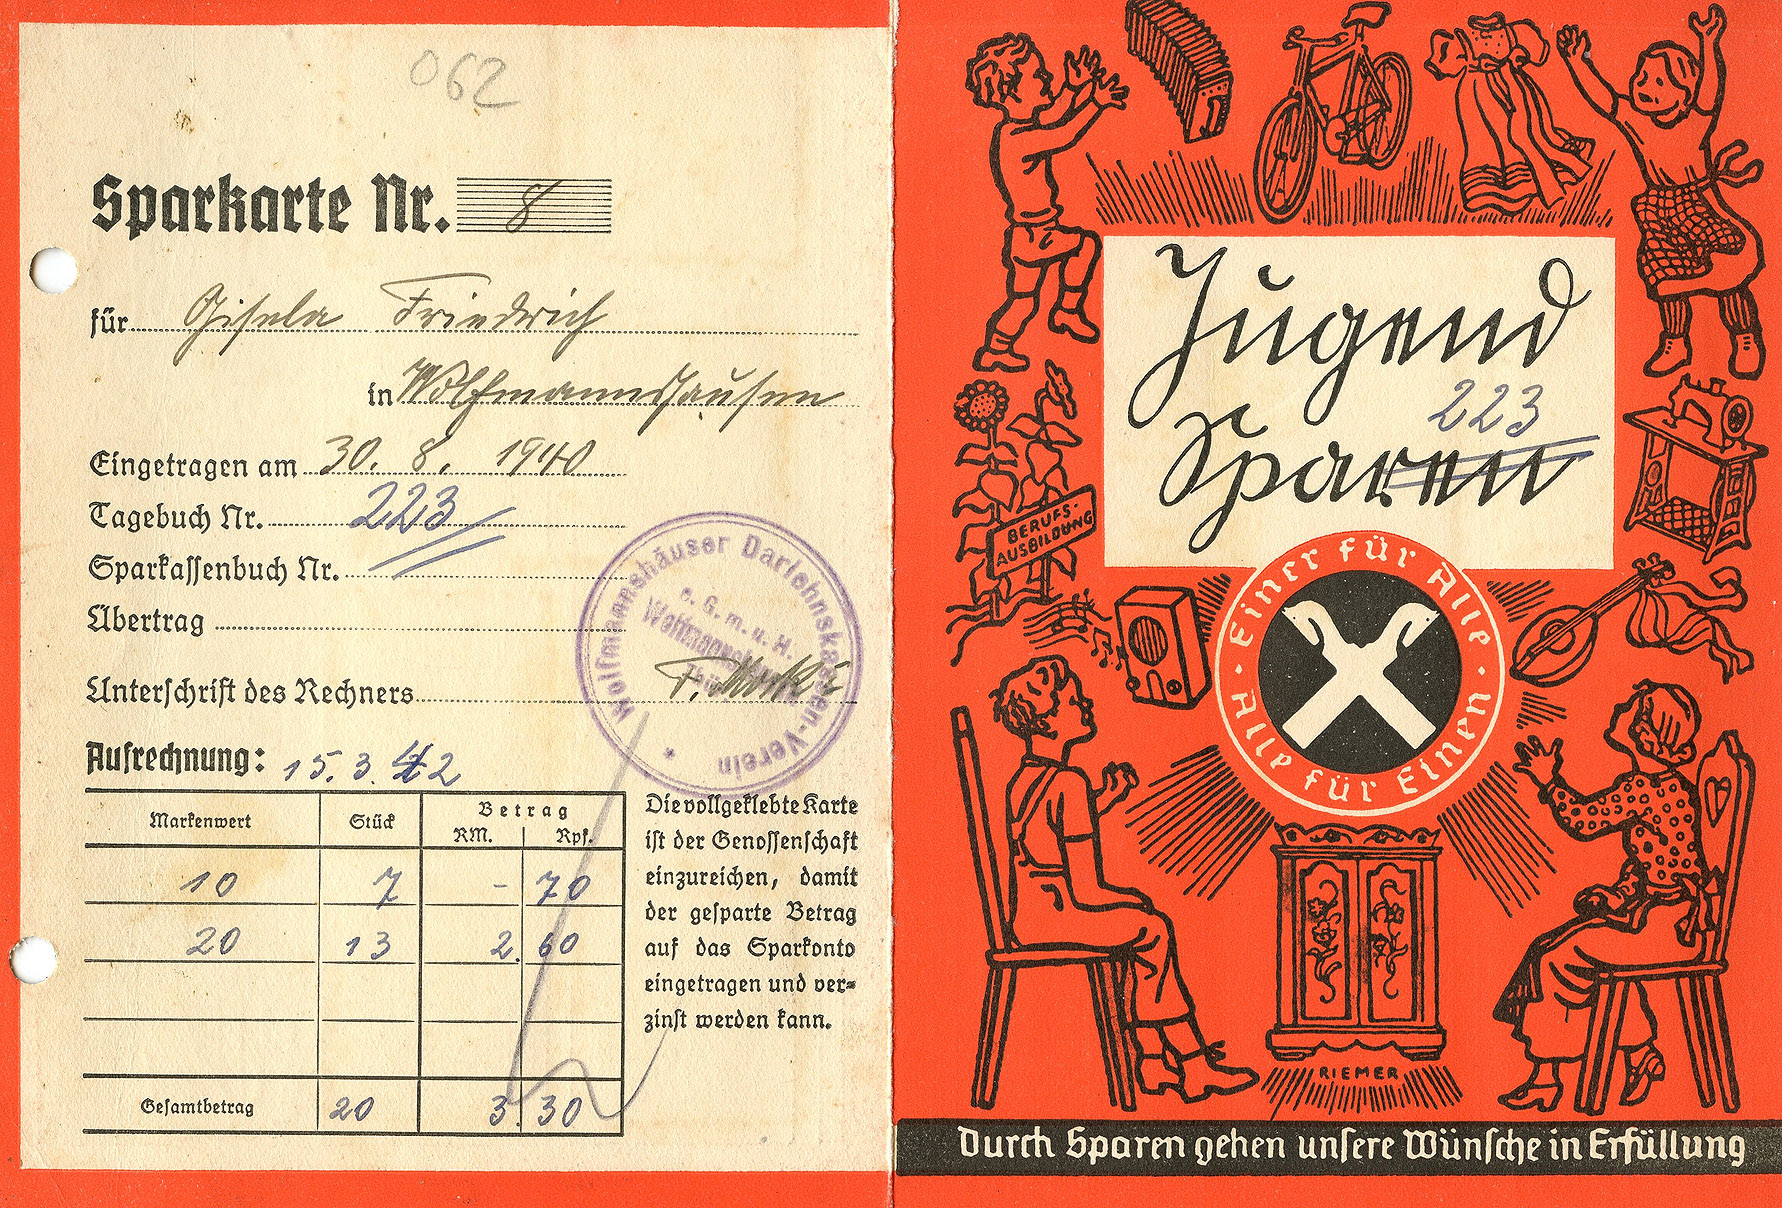 062
Sparkarte Nr. 8
für Gisela Friedrich
in Wolfmannshausen
Eingetragen am 30. 8. 1940
Tagebuch Nr. 223
Sparkassenbuch Nr.
Übertrag
Unterschrift des Rechners
Wolfmannshäuser Darlehnskassen-Verein
e. G. m. u. H.
Aufrechnung: 15. 3. 42
Markenwert Stück Betrag
RM. Rpf.
10 7 - 70
20 13 2. 60
Gesamtbetrag 20 3. 30
Die vollgeklebte Karte
ist der Genossenschaft
einzureichen, damit
der gesparte Betrag
auf das Sparkonto
eingetragen und ver-
zinst werden kann.
Jugend
223
Sparen
BERUFS-
AUSBILDUNG
Einer für Alle
Alle für Einen
RIEMER
Durch Sparen gehen unsere Wünsche in Erfüllung